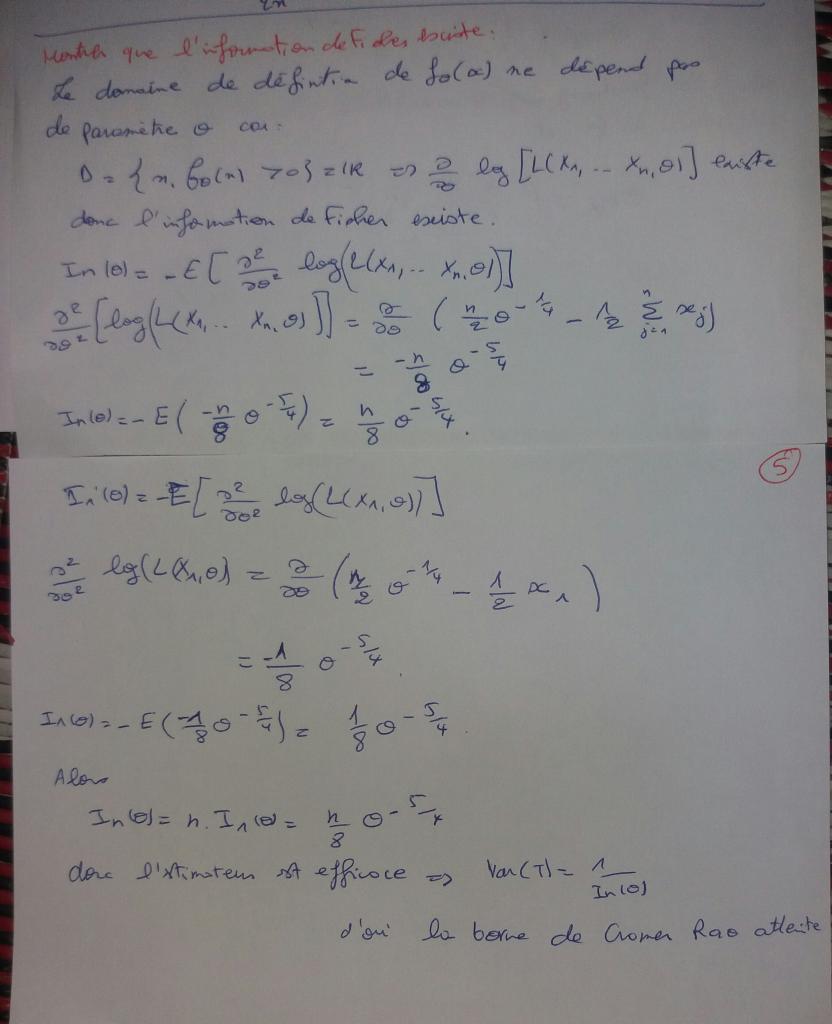 2n
Montrer que l'information de Ficher existe.
Le domaine de défintion de fθ(x) ne dépend pas
de paramètre θ car:
D = { x, fθ(x) > 0 } = IR => ∂/∂θ log [L(X1, .. Xn, θ)] existe
donc l'information de Ficher existe.
In(θ) = - E [ ∂²/∂θ² log(L(X1, .. Xn, θ)) ]
∂²/∂θ² [log(L(X1, .. Xn, θ)] = ∂/∂θ ( n/2 θ^-1/4 - 1/2 Σ_{j=1}^n xj )
= -n/8 θ^-5/4
In(θ) = - E ( -n/8 θ^-5/4 ) = n/8 θ^-5/4 .
5
I1(θ) = - E [ ∂²/∂θ² log(L(X1, θ)) ]
∂²/∂θ² log(L(X1, θ) = ∂/∂θ ( n/2 θ^-1/4 - 1/2 x1 )
= -1/8 θ^-5/4 .
I1(θ) = - E ( -1/8 θ^-5/4 ) = 1/8 θ^-5/4 .
Alors
In(θ) = n. I1(θ) = n/8 θ^-5/4
donc l'stimateur est efficace => Var(T) = 1/In(θ)
d'où la borne de Cramer Rao atteite